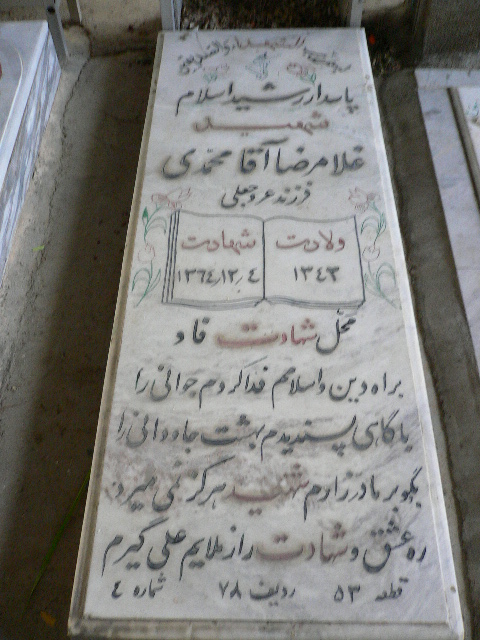 پاسدار رشید اسلام
شهید
غلامرضا آقامحمدی
فرزند عروجعلی
ولادت
۱۳۴۳
شهادت
۱۳۶۴٫۱۲٫۴
محل شهادت فاو
براه دین و اسلامم فدا کردم جوانی را
باگاهی پسندیدم بهشت جاودانی را
بگو بر مادر زارم شهید هرگز نمی میرد
ره عشق و شهادت را ز ملایم علی گیرم
قطعه ۵۳ ردیف ۷۸ شماره ۴